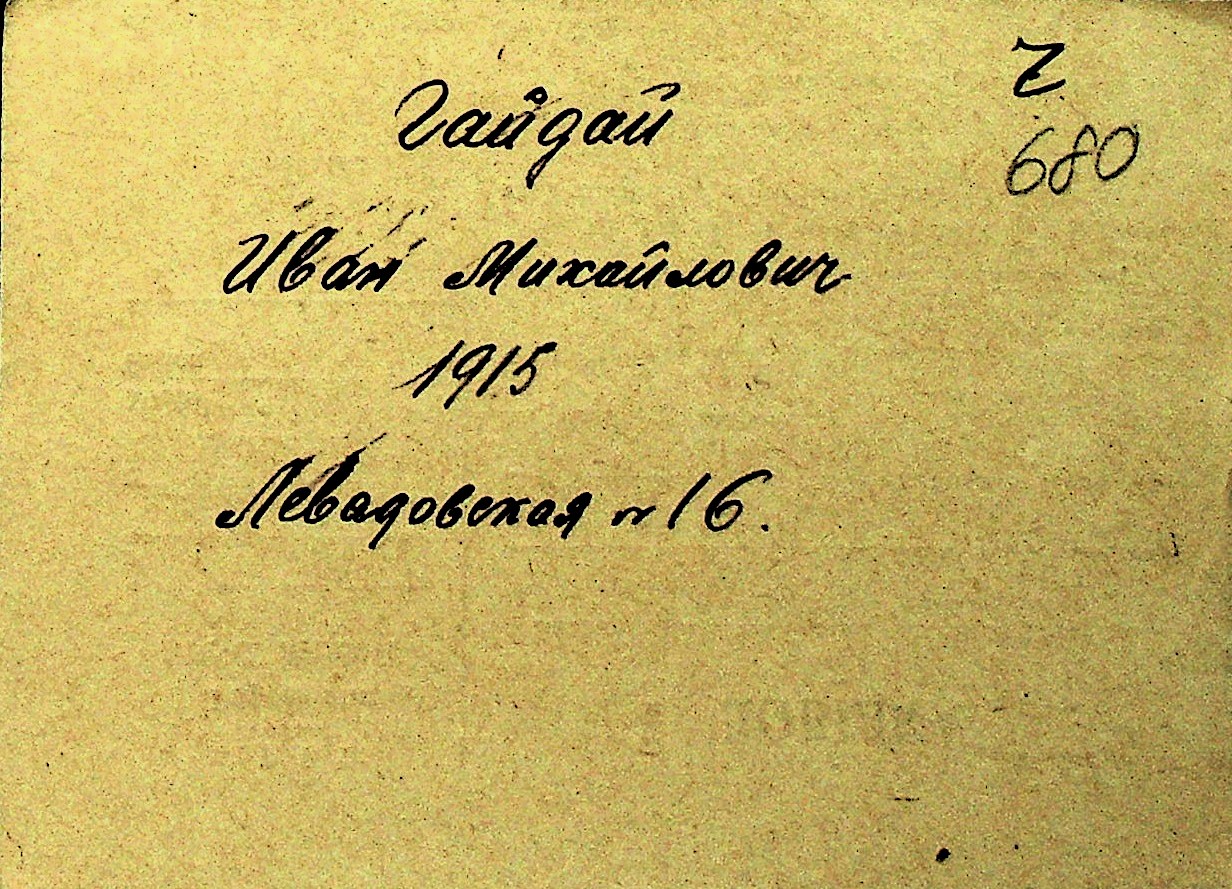 Гайдай
680
Иван Михайлович
1915
Левадовская № 16.